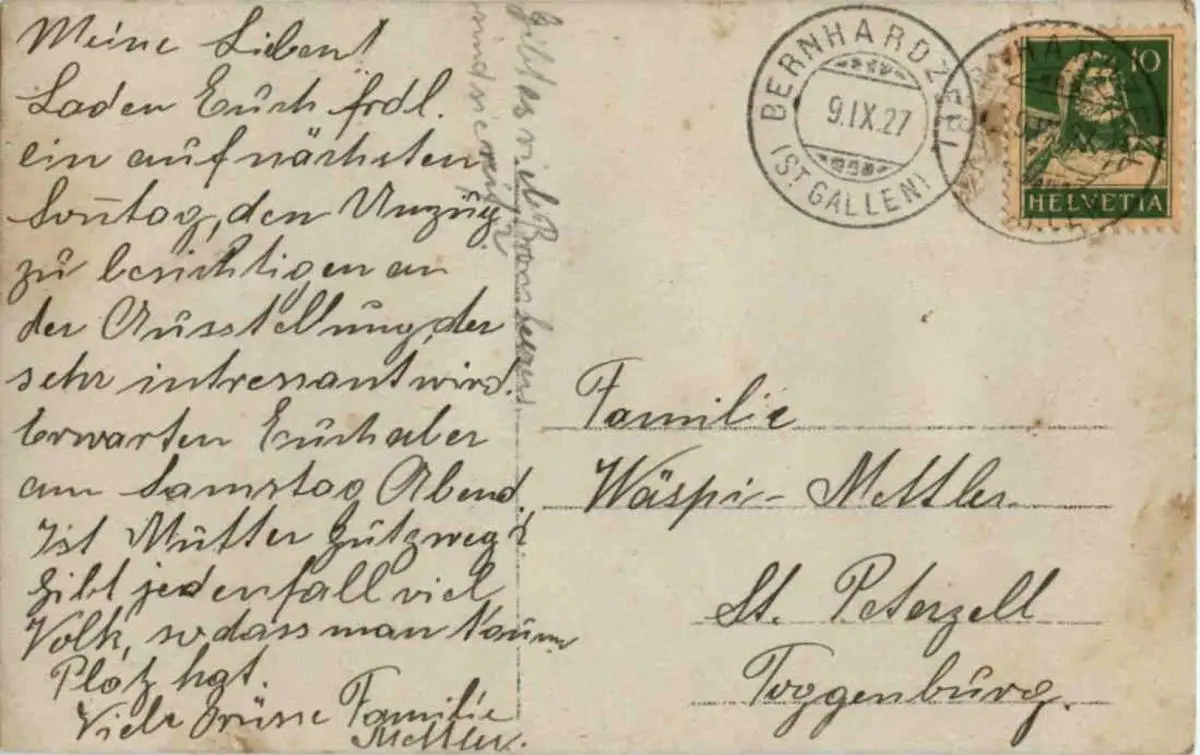 Meine Lieben!
Laden Euch frdl.
ein auf nächsten
Sonntag, den Umzug
zu besichtigen an
der Ausstellung, der
sehr intressant wird.
Erwarten Euch aber
am Samstag Abend.
Ist Mutter zweg?
Gibt jedenfall viel
Volk, so dass man kaum
Platz hat.
Viele Grüsse Familie
Mettler.
Gibt es viel
sind sie reif?
BERNHARDZELL
9.IX.27
(ST. GALLEN)
10
HELVETIA
Familie
Wäspi-Mettler
St. Peterzell
Toggenburg.